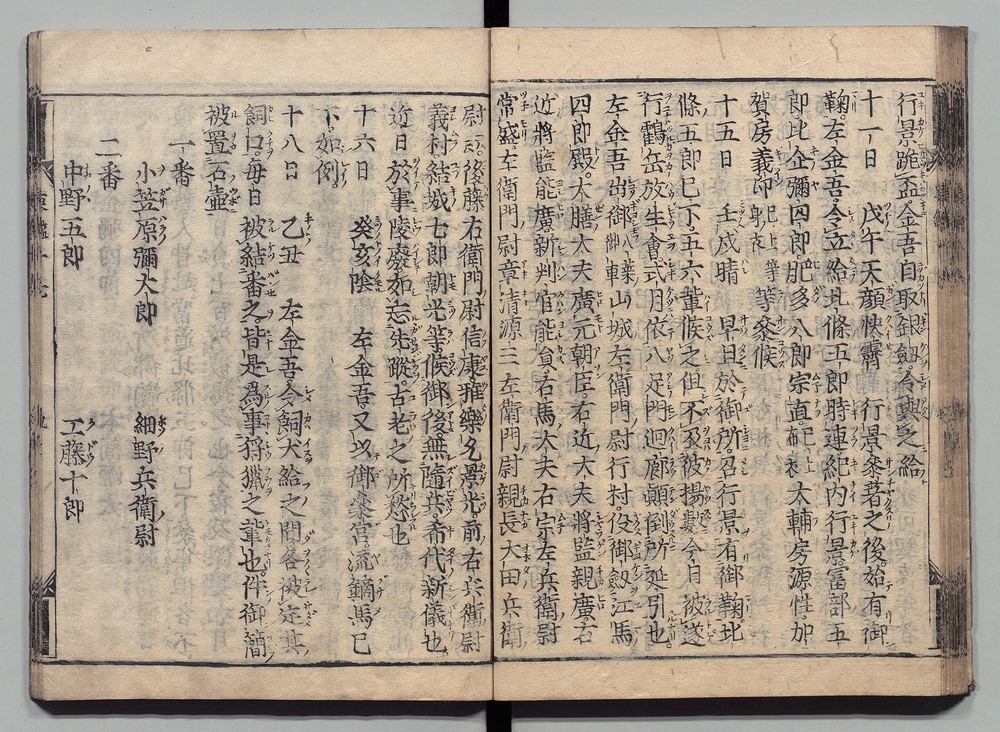 行景跪一盃金吾自取銀劔爲興之給
十一日 戊午天顔快霽 行景參著之後始有御
鞠左金吾令立給北條五郎時連紀内行景冨部五
郎比企彌四郎肥多八郎宗直已上布衣大輔房源性加
賀房義印已上等身衣等參候
十五日 壬戌晴 早旦於御所召行景有御鞠北
條五郎已下五六輩候之但不及被揚數今日被遂
行鶴岳放生會式月依八足門迴廊顚倒所延引也
左金吾出御御車八葉山城左衛門尉行村役御劔江馬
四郎殿大膳大夫廣元朝臣右近大夫將監親廣右
近將監能廣新判官能員右馬大夫右宗左兵衛尉
常盛左衛門尉章清源三左衛門尉親長大田兵衛
尉後藤右衛門尉信康雅樂允景光前右兵衛尉
義村結城七郎朝光等候御後無隨兵希代新儀也
近日於事陵廢如忘先蹤古老之所愁也
十六日 癸亥陰 左金吾又以御參宮流鏑馬已
下如例
十八日 乙丑 左金吾令飼犬給之間各被定其
飼口毎日被結番之皆是爲事狩獵之輩也件御簡
被置石壺
一番
小笠原彌太郎 細野兵衛尉
二番
中野五郎 工藤十郎